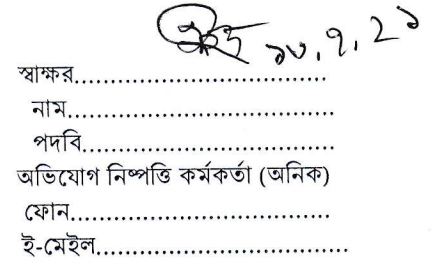 ১৩.৭.২১
স্বাক্ষর....................................
নাম......................................
পদবি....................................
অভিযোগ নিষ্পত্তি কর্মকর্তা (অনিক)
ফোন.....................................
ই-মেইল....................................